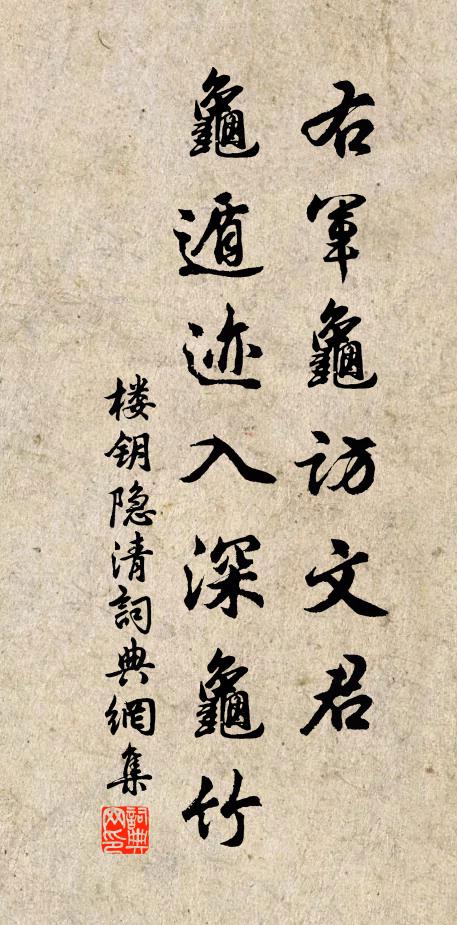 右軍龜访文君
龜遁迹入深龜竹
楼钥隐清詞典網集
詞典网印